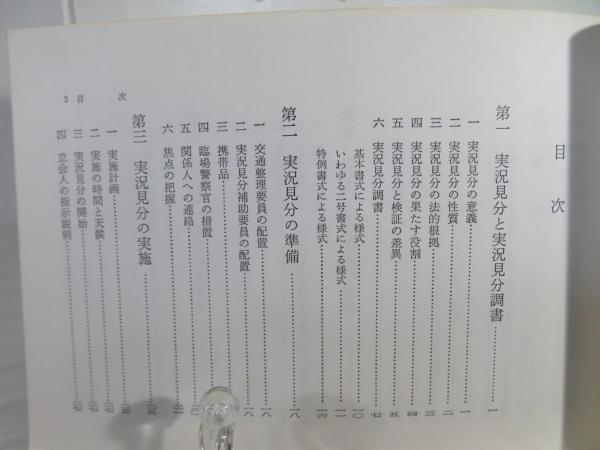 目次
第一 実況見分と実況見分調書……一
一 実況見分の意義……一
二 実況見分の性質……二
三 実況見分の法的根拠……三
四 実況見分の果たす役割……四
五 実況見分と検証の差異……五
六 実況見分調書……七
基本書式による様式……一〇
いわゆる二号書式による様式……一一
特例書式による様式……一六
第二 実況見分の準備……一八
一 交通整理要員の配置……一八
二 実況見分補助要員の配置……一八
三 携帯品
四 臨場警察官の措置
五 関係人への連絡
六 焦点の把握
第三 実況見分の実施……
一 実施計画……
二 実施の時間と天候……
三 実況見分の開始……
四 立会人の指示説明……
目次 3